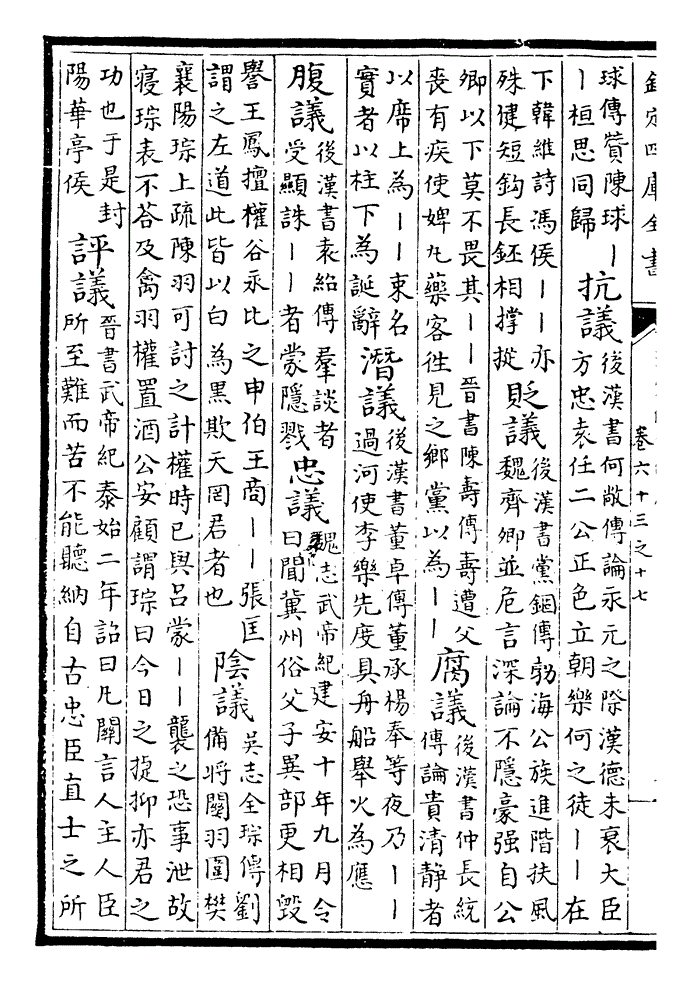 欽定四庫全書
卷六十三之十七
球傳贊陳球｜
｜桓思同歸
抗議
後漢書何敞傳論永元之際漢德未衰大臣
方忠袁任二公正色立朝樂何之徒｜｜在
下韓維詩馮侯｜｜亦
殊健短鈎長鉟相撑摐
貶議
後漢書黨錮傳勃海公族進階扶風
魏齊卿並危言深論不隱豪强自公
卿以下莫不畏其｜｜晉書陳壽傳壽遭父
喪有疾使婢丸藥客徃見之鄉黨以為｜｜
腐議
後漢書仲長統
傳論貴清静者
以席上為｜｜束名
實者以柱下為誕辭
潛議
後漢書董卓傳董承楊奉等夜乃｜｜
過河使李樂先度具舟船舉火為應
腹議
後漢書袁紹傳羣談者
受顯誅｜｜者蒙隱戮
忠議
魏志武帝紀建安十年九月令
曰聞冀州俗父子異部更相毀
譽王鳳擅權谷永比之申伯王商｜｜張匡
謂之左道此皆以白為黑欺天罔君者也
陰議
吳志全琮傳劉
備將闗羽圍樊
襄陽琮上疏陳羽可討之計權時已與呂蒙｜｜襲之恐事泄故
寢琮表不荅及禽羽權置酒公安顧謂琮曰今日之捷抑亦君之
功也于是封
陽華亭侯
評議
晉書武帝紀泰始二年詔曰凡關言人主人臣
所至難而苦不能聽納自古忠臣直士之所